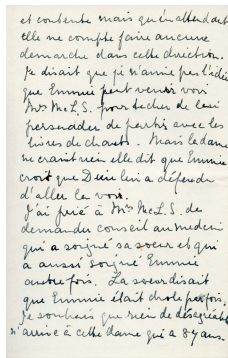 et contente mais qu'en attendant
elle ne compte faire aucune
demarche dans cette direction.
Je disait que je n'aime pas l'idée
que Emmie peut venir voir
Mrs McL.S. pour tacher de leur
persuader de partir avec les
livres de chants. Mais la dame
ne craint rien elle dit que Emmie
croit que Dieu lui a défendu
d'aller la voir.
J'ai prié à Mrs McL.S. de
demander conseil au medecin
qui a soigné sa soeur et qui
a aussi soigné Emmie
autre fois. La soeur disait
que Emmie était drole parfois.
Je souhais que rien de désagréable
n'arrive à cette dame qui a 84 ans.